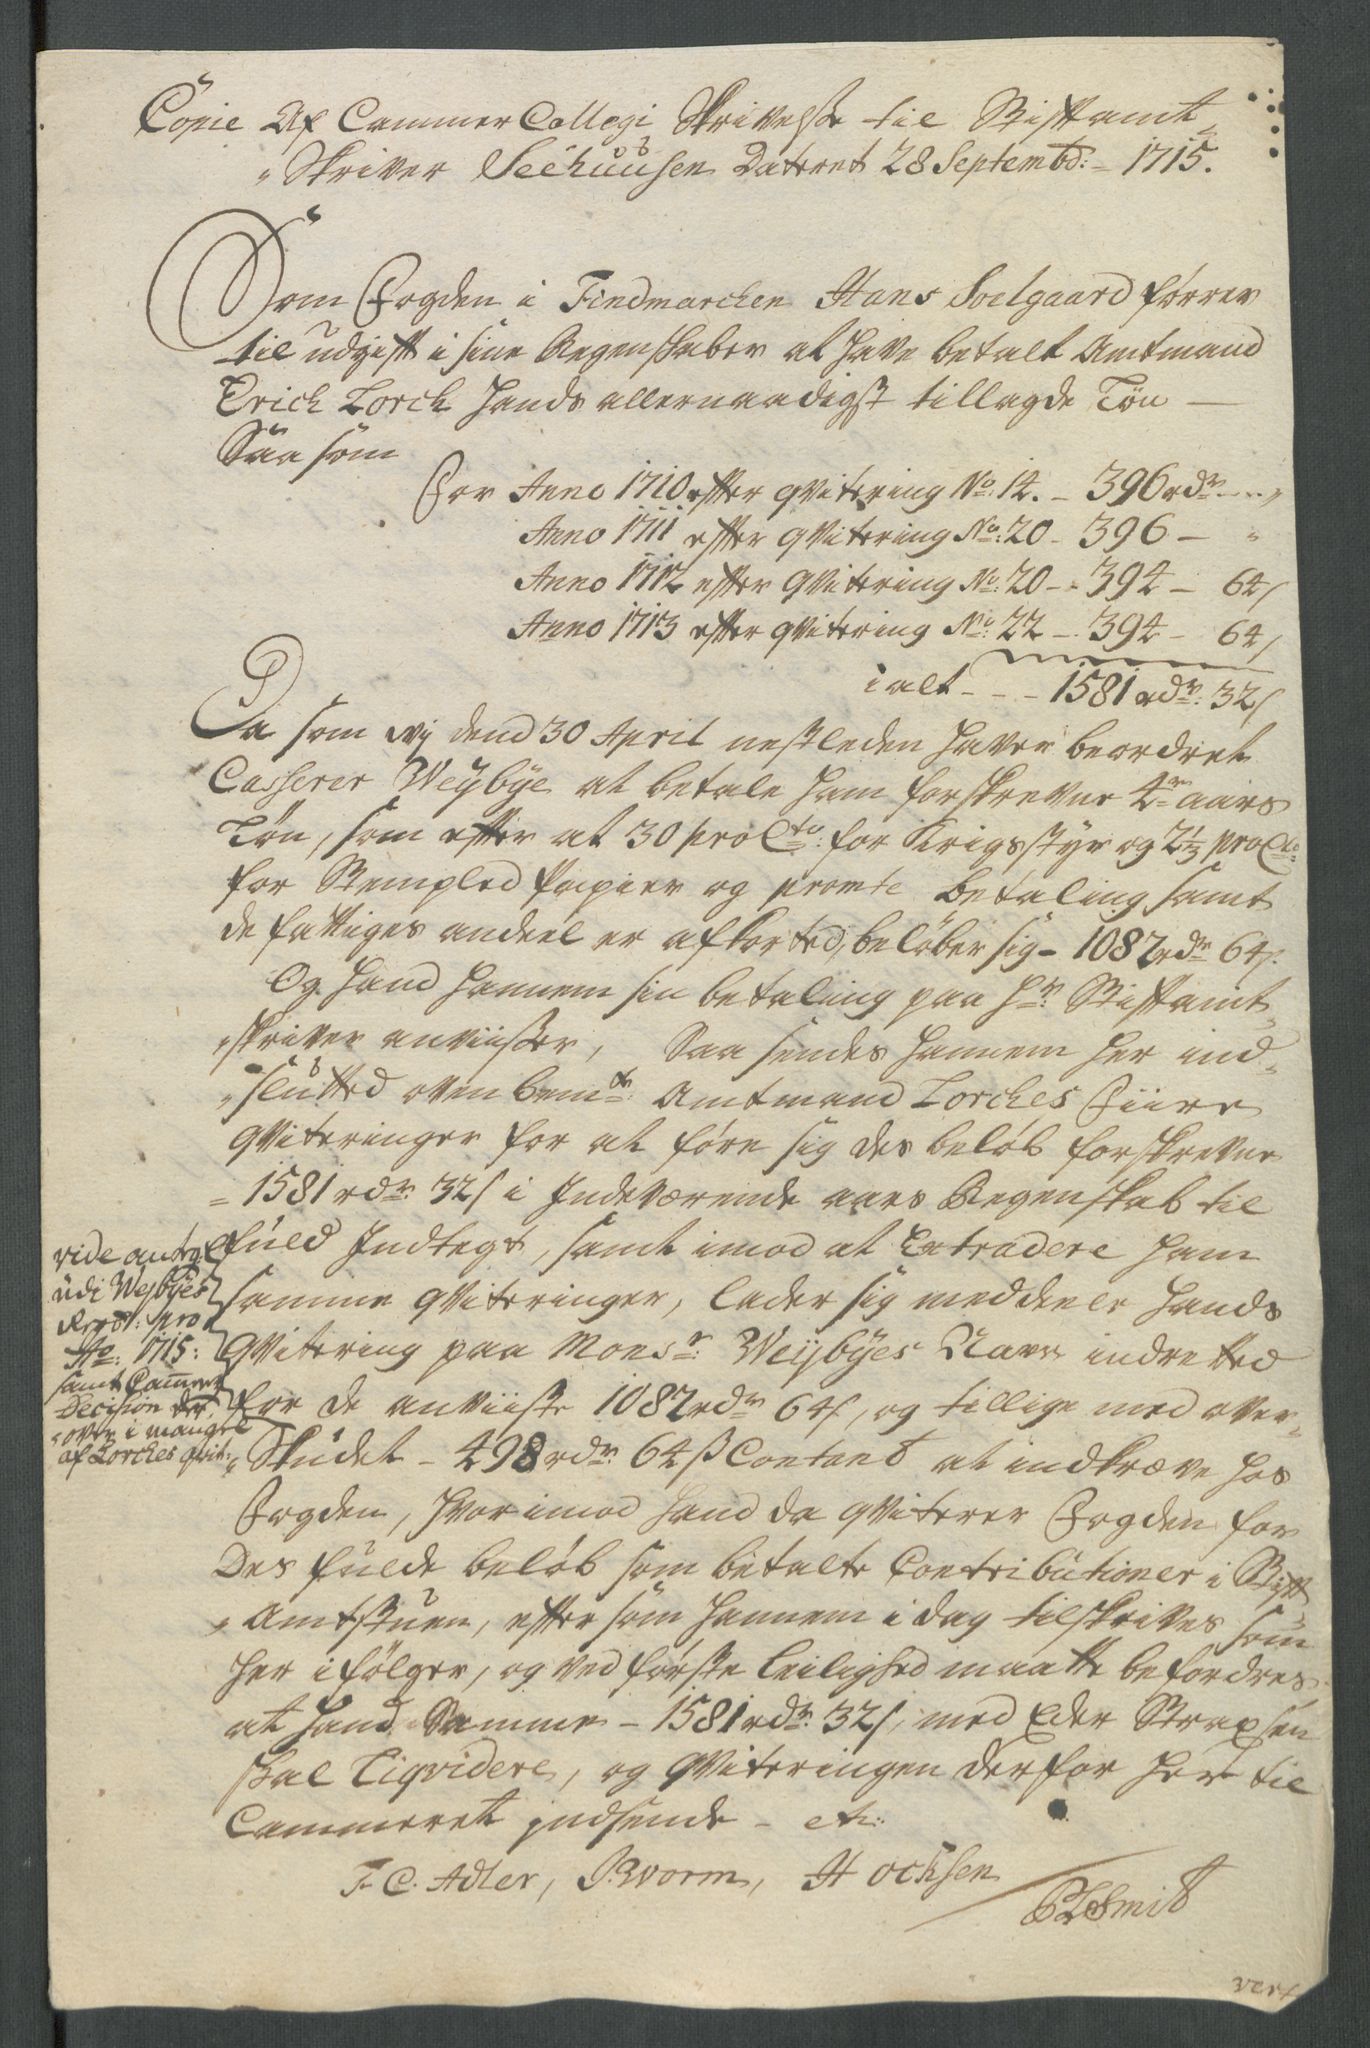 Copie Af Cammer Collegi Skrivelse til Stiftamt„
„Skriver Seehuusen Dateret 28 Septembr: – 1715.
Som Fogden i Findmarchen Hans Soelgaard förrer
til udgift i sine Regenskaber at have betalt Amtmand
Erich Lorch hands allernaadigst tillagde Lön —
Saa som
For Anno 1710 efter qvitering No: 14. – 396 rdr – „
Anno 1711 efter qvitering No: 20 – 396 – „
Anno 1712 efter qvitering No: 20 – 394 – 64ſ
Anno 1713 efter qvitering No: 22 – 394 – 64ſ
ialt – – – 1581 rdr: 32ſ
Da som wj dend 30 April nestleden haver beordret
Casserer Weybye at betale ham forskrevne 4re aars
Lön, som efter at 30 pro Cto: for Krigsstyr og 2⅓ pro Cto:
for Stempled Papier og promte betaling samt
de fattiges andeel er afkorted, belöber sig – 1082 rdr 64ſ.
Og hand hannem sin betaling paa Hr: Stiftamt„
„skriver anviisser, Saa sendes hannem her ind„
„slutted ovenbemte: Amtmand Lorches Fiire
qviteringer for at före sig des belöb forskrevne
– 1581 rdr: 32ſ i Indeværende aars Regenskab til
fuld Indtegt, samt imod at Extradere ham
samme qviteringer, lader sig meddeele hands
qvitering paa Monsr: Weijbÿes Navn indretted
for de anviiste 1082 rdr 64ſ, og tillige med over„
„Skudet – 498 rdr: 64ß Contant at indkræve hos
Fogden, hvorimod hand da qviterer Fogden for
Des fulde belöb som betalte Contributioner i Stift„
„Amtstuen, efter som hannem i dag tilskrives som
her i fölger, og ved förste leilighed maatte befordres,
at hand Samme – 1581 rdr: 32ſ, med Eder Strax
skal Liqvidere, og qviteringen derfor her til
Cammeret indsende – etc:
vide antegn
udi Weÿbÿes
Regt: pro
Ao: 1715:
samt Cammer
Decision der„
„over i mangel
af Lorches qvit:
F. C. Adler, J. Worm, H Ochsen
Smidt
vert